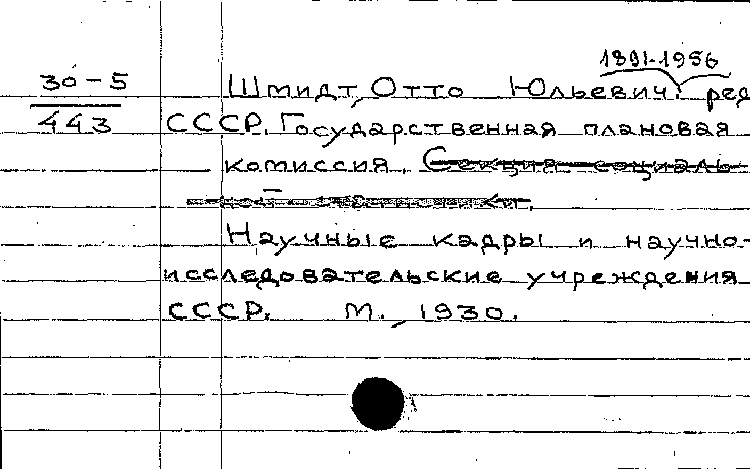 1891-1956
30-5 Шмидт, Отто Юльевич, ред
443 СССР. Государственная плановая
комиссия. Секция социаль-
Научные кадры и научно-
исследовательские учреждения
СССР. М., 1930.